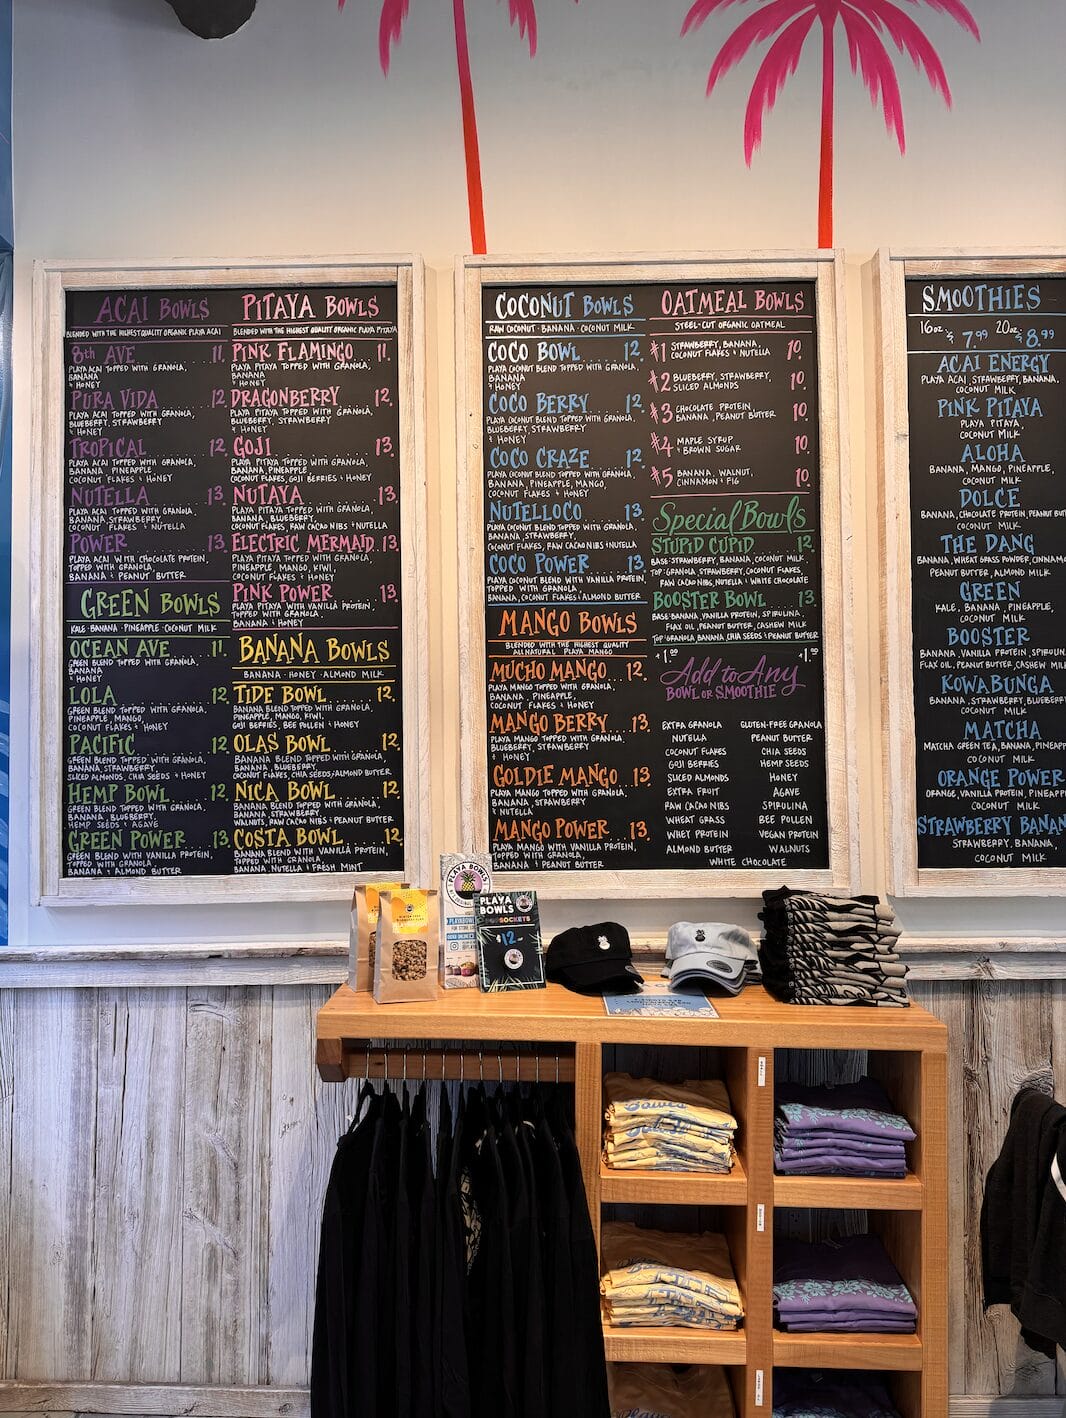 ACAI BOWLS
BLENDED WITH THE HIGHEST QUALITY ORGANIC PLAYA ACAI
8th AVE 11.
PLAYA ACAI TOPPED WITH GRANOLA,
BANANA
& HONEY
PURA VIDA 12.
PLAYA ACAI TOPPED WITH GRANOLA,
BLUEBERRY, STRAWBERRY
& HONEY
TROPICAL 12.
PLAYA ACAI TOPPED WITH GRANOLA,
BANANA, PINEAPPLE
COCONUT FLAKES & HONEY
NUTELLA 13.
PLAYA ACAI TOPPED WITH GRANOLA,
BANANA, STRAWBERRY,
COCONUT FLAKES & NUTELLA
POWER 13.
PLAYA ACAI WITH CHOCOLATE PROTEIN,
TOPPED WITH GRANOLA,
BANANA & PEANUT BUTTER
GREEN BOWLS
KALE · BANANA · PINEAPPLE · COCONUT MILK
OCEAN AVE 11.
GREEN BLEND TOPPED WITH GRANOLA,
BANANA
& HONEY
LOLA 12.
GREEN BLEND TOPPED WITH GRANOLA,
PINEAPPLE, MANGO,
COCONUT FLAKES & HONEY
PACIFIC 12.
GREEN BLEND TOPPED WITH GRANOLA,
BANANA, STRAWBERRY,
SLICED ALMONDS, CHIA SEEDS & HONEY
HEMP BOWL 12.
GREEN BLEND TOPPED WITH GRANOLA,
BANANA, BLUEBERRY,
HEMP SEEDS & AGAVE
GREEN POWER 13.
GREEN BLEND WITH VANILLA PROTEIN,
TOPPED WITH GRANOLA,
BANANA & ALMOND BUTTER
PITAYA BOWLS
BLENDED WITH THE HIGHEST QUALITY ORGANIC PLAYA PITAYA
PINK FLAMINGO 11.
PLAYA PITAYA TOPPED WITH GRANOLA,
BANANA
& HONEY
DRAGONBERRY 12.
PLAYA PITAYA TOPPED WITH GRANOLA,
BLUEBERRY, STRAWBERRY
& HONEY
GOJI 13.
PLAYA PITAYA TOPPED WITH GRANOLA,
BANANA, PINEAPPLE,
COCONUT FLAKES, GOJI BERRIES & HONEY
NUTAYA 13.
PLAYA PITAYA TOPPED WITH GRANOLA,
BANANA, BLUEBERRY,
COCONUT FLAKES, RAW CACAO NIBS & NUTELLA
ELECTRIC MERMAID 13.
PLAYA PITAYA TOPPED WITH GRANOLA,
PINEAPPLE, MANGO, KIWI,
COCONUT FLAKES & HONEY
PINK POWER 13.
PLAYA PITAYA WITH VANILLA PROTEIN,
TOPPED WITH GRANOLA,
BANANA & HONEY
BANANA BOWLS
BANANA · HONEY · ALMOND MILK
TIDE BOWL 12.
BANANA BLEND TOPPED WITH GRANOLA,
PINEAPPLE, MANGO, KIWI,
GOJI BERRIES, BEE POLLEN & HONEY
OLAS BOWL 12.
BANANA BLEND TOPPED WITH GRANOLA,
BANANA, BLUEBERRY,
COCONUT FLAKES, CHIA SEEDS & ALMOND BUTTER
NICA BOWL 12.
BANANA BLEND TOPPED WITH GRANOLA,
BANANA, STRAWBERRY,
WALNUTS, RAW CACAO NIBS & PEANUT BUTTER
COSTA BOWL 12.
BANANA BLEND WITH VANILLA PROTEIN,
TOPPED WITH GRANOLA,
BANANA, NUTELLA & FRESH MINT
COCONUT BOWLS
RAW COCONUT · BANANA · COCONUT MILK
COCO BOWL 12.
PLAYA COCONUT BLEND TOPPED WITH GRANOLA,
BANANA
& HONEY
COCO BERRY 12.
PLAYA COCONUT BLEND TOPPED WITH GRANOLA,
BLUEBERRY, STRAWBERRY
& HONEY
COCO CRAZE 12.
PLAYA COCONUT BLEND TOPPED WITH GRANOLA,
BANANA, PINEAPPLE, MANGO,
COCONUT FLAKES & HONEY
NUTELLOCO 13.
PLAYA COCONUT BLEND TOPPED WITH GRANOLA,
BANANA, STRAWBERRY,
COCONUT FLAKES, RAW CACAO NIBS & NUTELLA
COCO POWER 13.
PLAYA COCONUT BLEND WITH VANILLA PROTEIN,
TOPPED WITH GRANOLA,
BANANA, COCONUT FLAKES & ALMOND BUTTER
MANGO BOWLS
BLENDED WITH THE HIGHEST QUALITY
ALL NATURAL PLAYA MANGO
MUCHO MANGO 12.
PLAYA MANGO TOPPED WITH GRANOLA,
BANANA, PINEAPPLE,
COCONUT FLAKES & HONEY
MANGO BERRY 13.
PLAYA MANGO TOPPED WITH GRANOLA,
BLUEBERRY, STRAWBERRY
& HONEY
GOLDIE MANGO 13.
PLAYA MANGO TOPPED WITH GRANOLA,
BANANA, STRAWBERRY
& NUTELLA
MANGO POWER 13.
PLAYA MANGO WITH VANILLA PROTEIN,
TOPPED WITH GRANOLA,
BANANA & PEANUT BUTTER
OATMEAL BOWLS
STEEL-CUT ORGANIC OATMEAL
#1 STRAWBERRY, BANANA, 10.
COCONUT FLAKES & NUTELLA
#2 BLUEBERRY, STRAWBERRY, 10.
SLICED ALMONDS
#3 CHOCOLATE PROTEIN, 10.
BANANA, PEANUT BUTTER
#4 MAPLE SYRUP 10.
& BROWN SUGAR
#5 BANANA, WALNUT, 10.
CINNAMON & FIG
Special Bowls
STUPID CUPID 12.
BASE: STRAWBERRY, BANANA, COCONUT MILK
TOP: GRANOLA, STRAWBERRY, COCONUT FLAKES,
RAW CACAO NIBS, NUTELLA & WHITE CHOCOLATE
BOOSTER BOWL 13.
BASE: BANANA, VANILLA PROTEIN, SPIRULINA,
FLAX OIL, PEANUT BUTTER, CASHEW MILK
TOP: GRANOLA, BANANA, CHIA SEEDS & PEANUT BUTTER
+1.00 Add to Any +1.00
BOWL OR SMOOTHIE
EXTRA GRANOLA GLUTEN-FREE GRANOLA
NUTELLA PEANUT BUTTER
COCONUT FLAKES CHIA SEEDS
GOJI BERRIES HEMP SEEDS
SLICED ALMONDS HONEY
EXTRA FRUIT AGAVE
RAW CACAO NIBS SPIRULINA
WHEAT GRASS BEE POLLEN
WHEY PROTEIN VEGAN PROTEIN
ALMOND BUTTER WALNUTS
WHITE CHOCOLATE
SMOOTHIES
16oz 7.99 20oz 8.99
ACAI ENERGY
PLAYA ACAI, STRAWBERRY, BANANA,
COCONUT MILK
PINK PITAYA
PLAYA PITAYA,
COCONUT MILK
ALOHA
BANANA, MANGO, PINEAPPLE,
COCONUT MILK
DOLCE
BANANA, CHOCOLATE PROTEIN, PEANUT BUT
COCONUT MILK
THE DANG
BANANA, WHEAT GRASS POWDER, CINNAMO
PEANUT BUTTER, ALMOND MILK
GREEN
KALE, BANANA, PINEAPPLE,
COCONUT MILK
BOOSTER
BANANA, VANILLA PROTEIN, SPIRULIN
FLAX OIL, PEANUT BUTTER, CASHEW MILK
KOWABUNGA
BANANA, STRAWBERRY, BLUEBERR
COCONUT MILK
MATCHA
MATCHA GREEN TEA, BANANA, PINEAPP
COCONUT MILK
ORANGE POWER
ORANGE, VANILLA PROTEIN, PINEAPP
COCONUT MILK
STRAWBERRY BANAN
STRAWBERRY, BANANA,
COCONUT MILK
PLAYA BOWLS
PLAYA
BOWLS
POPSOCKETS
$12